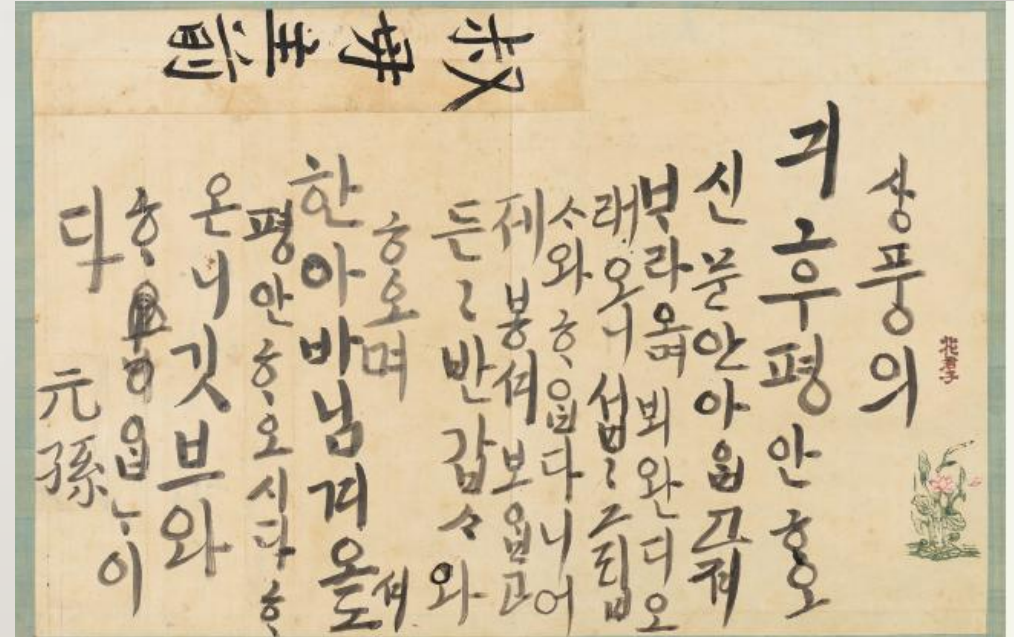 叔母主前
상풍의
긔후평안ᄒᆞ오
신 문안 아ᄋᆞᆸ고져
ᄇᆞ라오며 뵈완디오
래오니 섭〻 그립
ᄉᆞ와 ᄒᆞᄋᆞᆸ다니 어
제 봉셔 보ᄋᆞᆸ고
든〻 반갑ᄉᆞ와
ᄒᆞ오며
한아바님겨오셔도
평안ᄒᆞ오시다 ᄒᆞ
온니 깃브와
ᄒᆞᄋᆞᆸᄂᆞ이
다
元孫
花君子